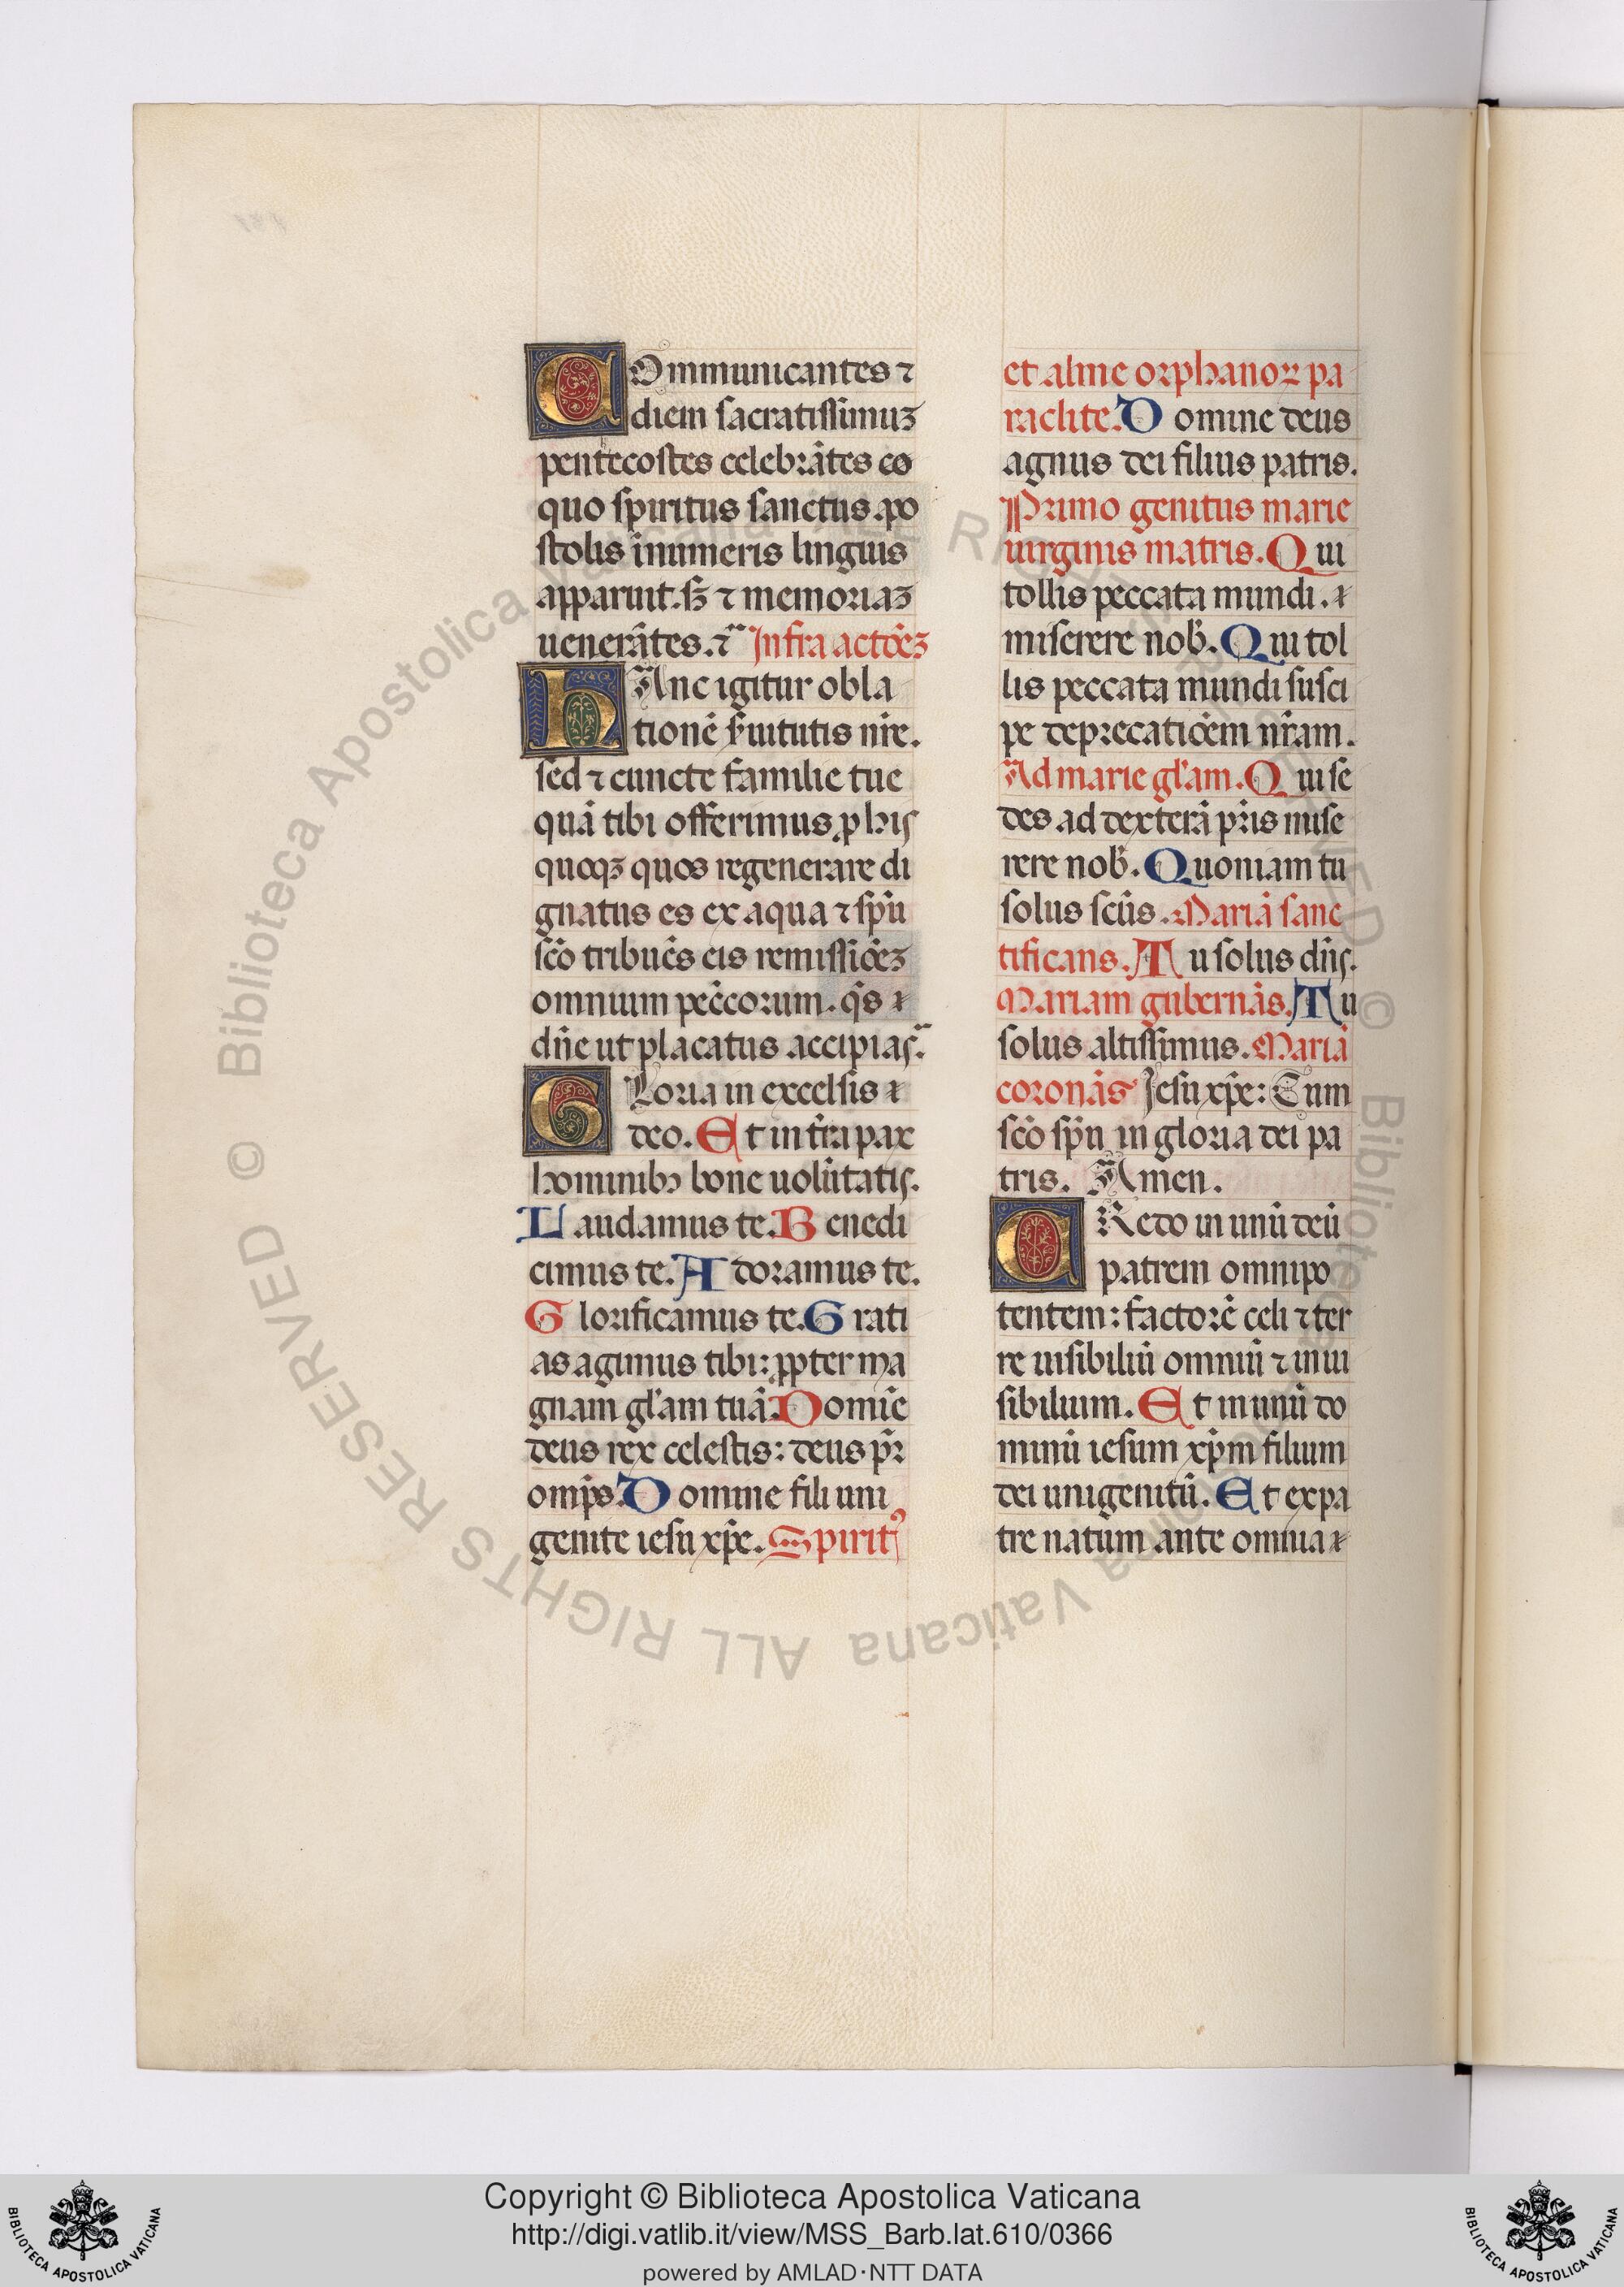 COmmunicantes ⁊
diem sacratissimuꝫ
pentecostes celebrātes eo
quo spiritus sanctus apo
stolis īnumeris linguis
apparuit. sꝫ ⁊ memoriaꝫ
uenerātes. ⁊ Infra actōeꝫ
HAnc igitur obla
tionē ẜuitutis nr̄e.
sed ⁊ cuncte familie tue
quā tibi offerimus p̱ his
quoqꝫ quos regenerare di
gnatus es ex aqua ⁊ spū
scō tribuēs eis remissiōeꝫ
omnium peccōrum. qs̄
dn̄e ut placatus accipias.
GLoria in excelsis
deo. Et in tr̄a pax
hominibꝫ bone uolūtatis.
Laudamus te. Benedi
cimus te. Adoramus te.
Glorificamus te. Grati
as agimus tibi: ꝓpter ma
gnam gl̄am tuā. Domīe
deus rex celestis: deus pr̄
omp̄s. Domine fili uni
genite iesu xp̄e. Spirit⁹
et alme orphanoꝝ pa
raclite. Domine deus
agnus dei filius patris.
Primo genitus marie
uirginis matris. Qui
tollis peccata mundi.
miserere nob̄. Qui tol
lis peccata mundi susci
pe deprecatiōem nr̄am.
Ad marie gl̄am. Qui se
des ad dexterā pr̄is mise
rere nob̄. Quoniam tu
solus scūs. Mariā sanc
tificans. Tu solus dn̄s.
Mariam gubernās. Tu
solus altissimus. Mariā
coronās Jesu xp̄e: Cum
scō spū in gloria dei pa
tris. Amen.
CRedo in unū deū
patrem omnipo
tentem: factorē celi ⁊ ter
re uisibiliū omniū ⁊ inui
sibilium. Et in unū do
minū iesum xp̄m filium
dei unigenitū. Et ex pa
tre natum ante omnia
© Biblioteca Apostolica Vaticana ALL RIGHTS RESERVED © Biblioteca Apostolica Vaticana ALL RIGHTS RESERVED
Copyright © Biblioteca Apostolica Vaticana
http://digi.vatlib.it/view/MSS_Barb.lat.610/0366
powered by AMLAD·NTT DATA
BIBLIOTECA APOSTOLICA VATICANA
BIBLIOTECA APOSTOLICA VATICANA